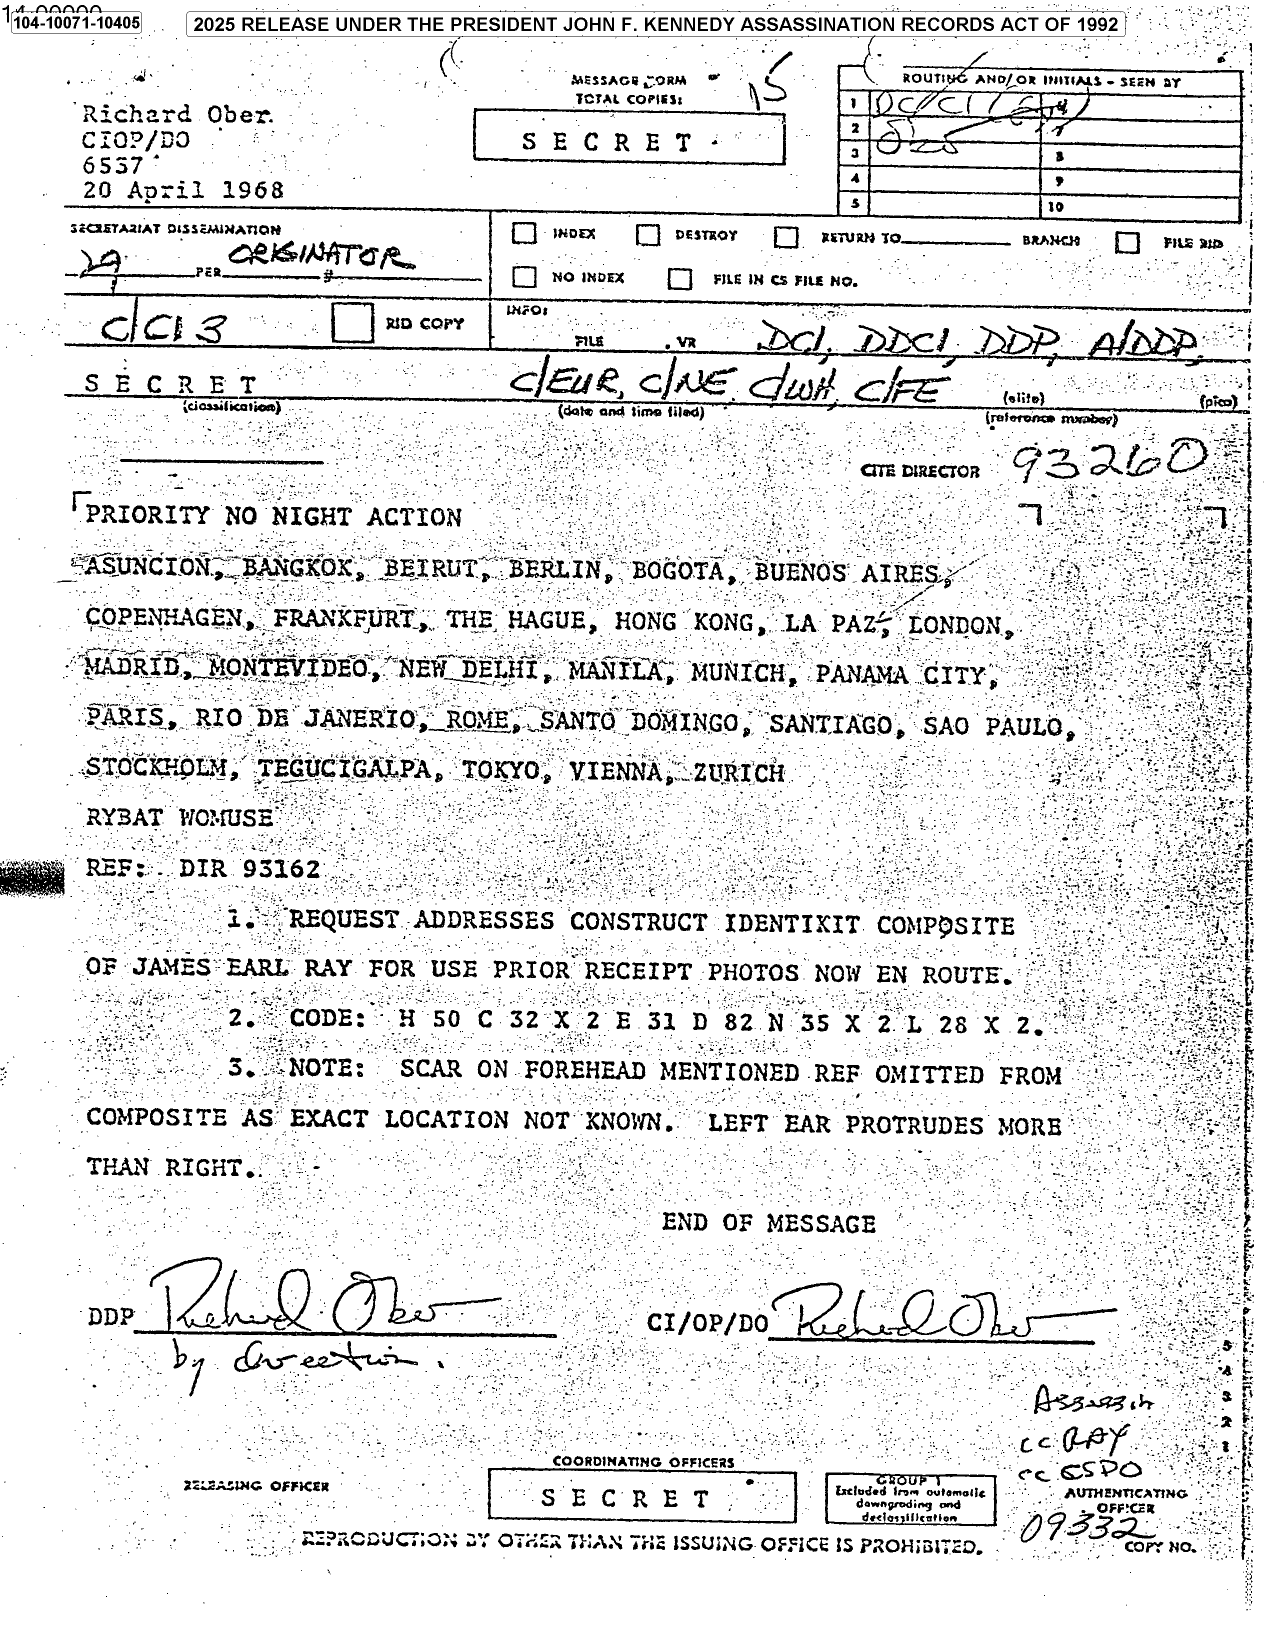 14-00000
104-10071-10405
2025 RELEASE UNDER THE PRESIDENT JOHN F. KENNEDY ASSASSINATION RECORDS ACT OF 1992
MESSAGE FORM
TOTAL COPIES: 15
ROUTING AND/OR INITIALS - SEEN BY
Richard Ober
CIOP/DO
6537
20 April 1968
S E C R E T
1
2
3 8
4 9
5 10
SECRETARIAT DISSEMINATION
ORIGINATOR
PER #
INDEX DESTROY RETURN TO BRANCH FILE RID
NO INDEX FILE IN CS FILE NO.
C/CI 3 RID COPY
INFO:
FILE , VR DCI, DDCI, DDP, A/DDP,
S E C R E T C/EUR, C/NE, C/WH, C/FE
(classification) (date and time filed) (elite) (pica)
(reference number)
CITE DIRECTOR 93260
PRIORITY NO NIGHT ACTION
ASUNCION, BANGKOK, BEIRUT, BERLIN, BOGOTA, BUENOS AIRES,
COPENHAGEN, FRANKFURT, THE HAGUE, HONG KONG, LA PAZ, LONDON,
MADRID, MONTEVIDEO, NEW DELHI, MANILA, MUNICH, PANAMA CITY,
PARIS, RIO DE JANERIO, ROME, SANTO DOMINGO, SANTIAGO, SAO PAULO,
STOCKHOLM, TEGUCIGALPA, TOKYO, VIENNA, ZURICH
RYBAT WOMUSE
REF: DIR 93162
1. REQUEST ADDRESSES CONSTRUCT IDENTIKIT COMPOSITE
OF JAMES EARL RAY FOR USE PRIOR RECEIPT PHOTOS NOW EN ROUTE.
2. CODE: H 50 C 32 X 2 E 31 D 82 N 35 X 2 L 28 X 2.
3. NOTE: SCAR ON FOREHEAD MENTIONED REF OMITTED FROM
COMPOSITE AS EXACT LOCATION NOT KNOWN. LEFT EAR PROTRUDES MORE
THAN RIGHT.
END OF MESSAGE
DDP Richard Ober CI/OP/DO Richard Ober
by direction.
5
4
3
2
1
Assassin
cc RAY
cc CSDO
COORDINATING OFFICERS
RELEASING OFFICER
S E C R E T
GROUP 1
Excluded from automatic
downgrading and
declassification
AUTHENTICATING
OFFICER
09332
COPY NO.
REPRODUCTION BY OTHER THAN THE ISSUING OFFICE IS PROHIBITED.